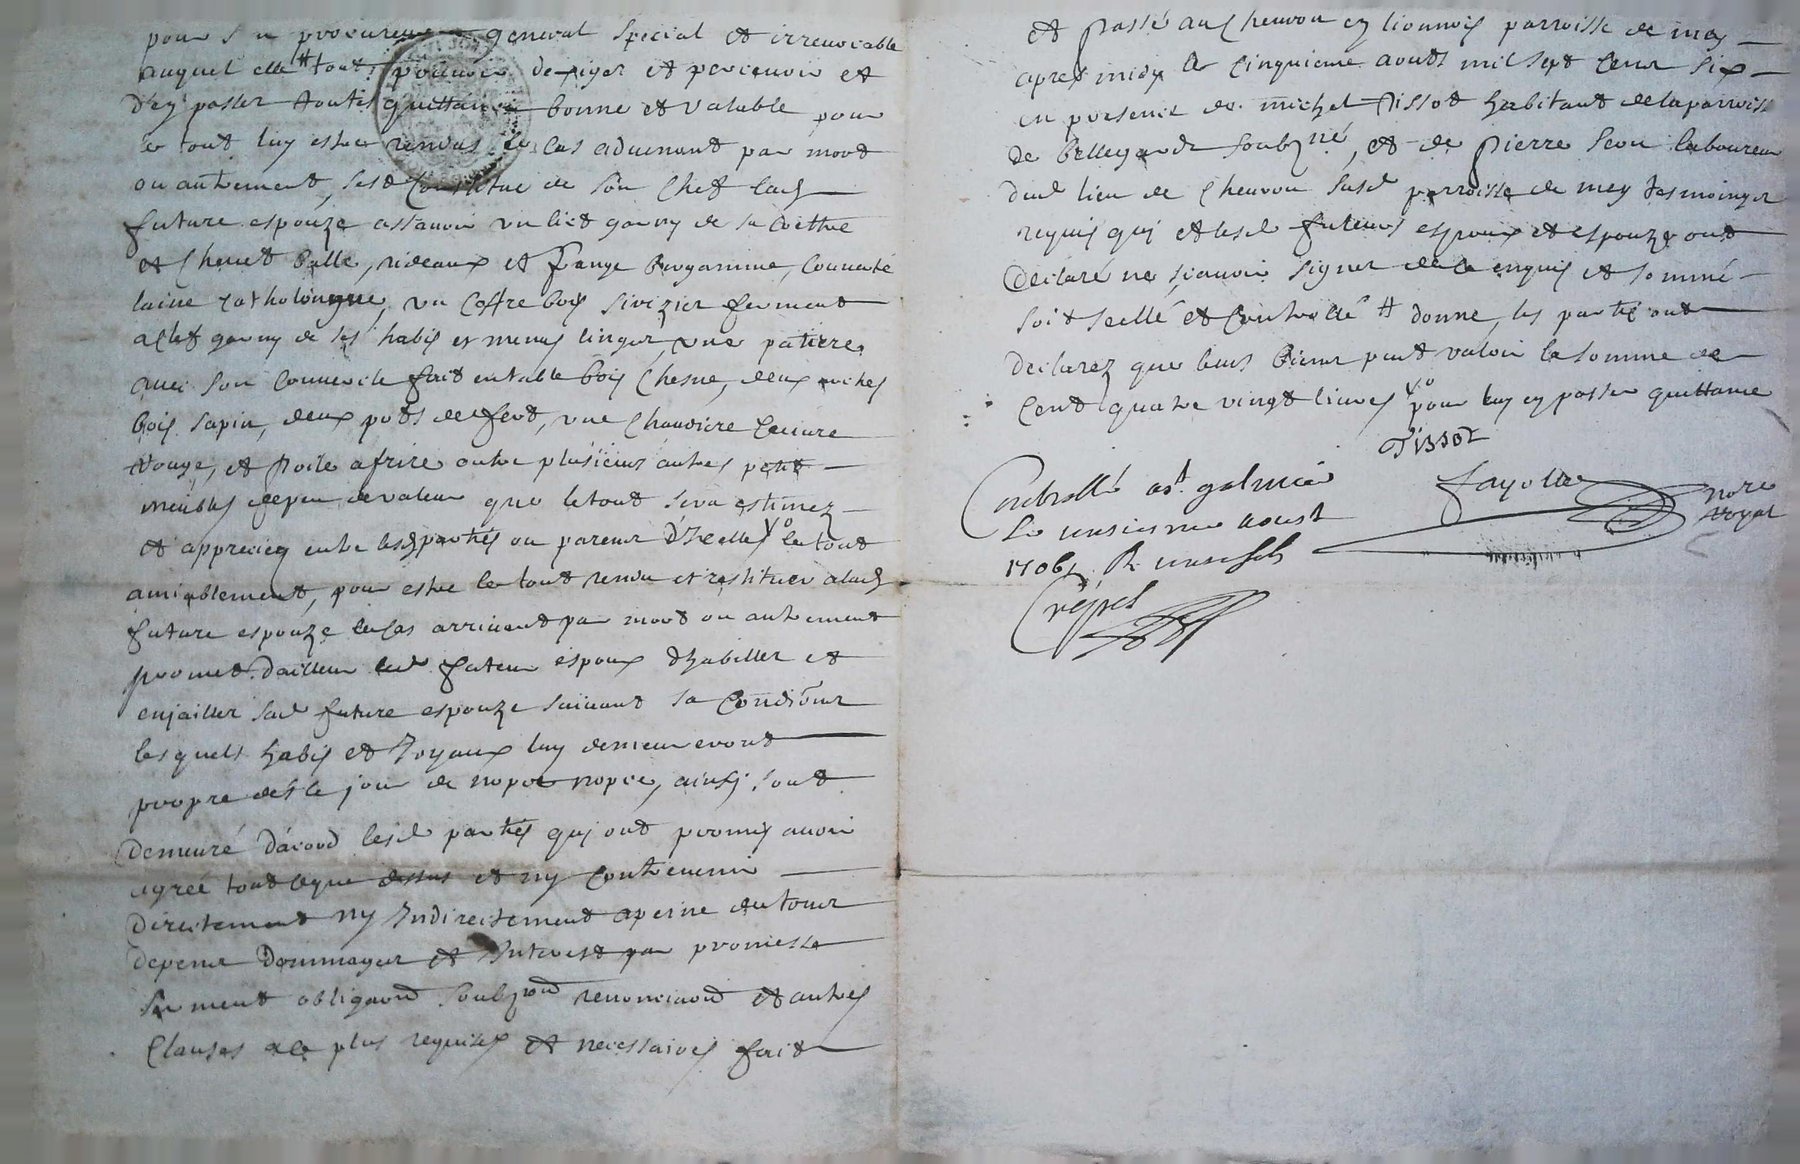 pour son procureur general special et irreuocable
auquel elle # tout pouuoir dexiger et perceuoir et
d'ey passer toutes quittance bonne et valable pour
le tout luy estre rendus le cas aduenant par mort
ou autrement, sest constitue de son chef lad
future espouze assauoir un lict garny de sa coittre
et cheuet balle, rideaux et frange bergamme, couuerte
laine catholongne, un coffre bois sirizier fermant
a clef garny de ses habis et menus linges, une patiere
auec son couuercle fait en table bois chesne, deux
bois sapin, deux pots de fert, une chaudiere cuiure
rouge, et poile a frire outre plusieurs autres petit
meubles de peu de valeur que le tout sera estimez
et apprecieq entre lesd parties ou parens d'Icelles le tout
amiablement, pour estre le tout rendu et restituer a lad
future espouze le cas arriuant par mort ou autrement
promet d'ailleur led futeur espoux dhabiller et
enjailler sad future espouze suiuant sa condition
lesquels habis et Joyaux luy demeureront
propre des le jour de nopce, ainsy sont
demeuré d'acord lesd parties quj ont promis auoir
agreé tout ceque dessus et ny contreuenir
directement ny Indirectement a peine de tous
depens dommages et Interest par promesse
serment obligaond soubzond renonciaond et autres
clauses a ce plus requises et necessaires fait
et passé au Cheuvon ey lionnois parroisse de mey
apres midy le cinquieme aoust mil sept cens six
en presence de michel Tissot habitant de la parroisse
de bellegarde soubzné, et de pierre laboureur
dud lieu de Cheuvon susd parroisse de mey tesmoinges
requis quj et lesd futeurs espoux et espouze ont
declaré ne scauoir signer de ce enquis et sommé
soit scellé et controllé # donne, les parties ont
declarez que leurs biens peut valoir la somme de
cent quatre vingt liures pour luy ey passer quittance
Tissot
Controllé a st galmier
Le unsiesme aoust
1706
fayolle
nore
royal